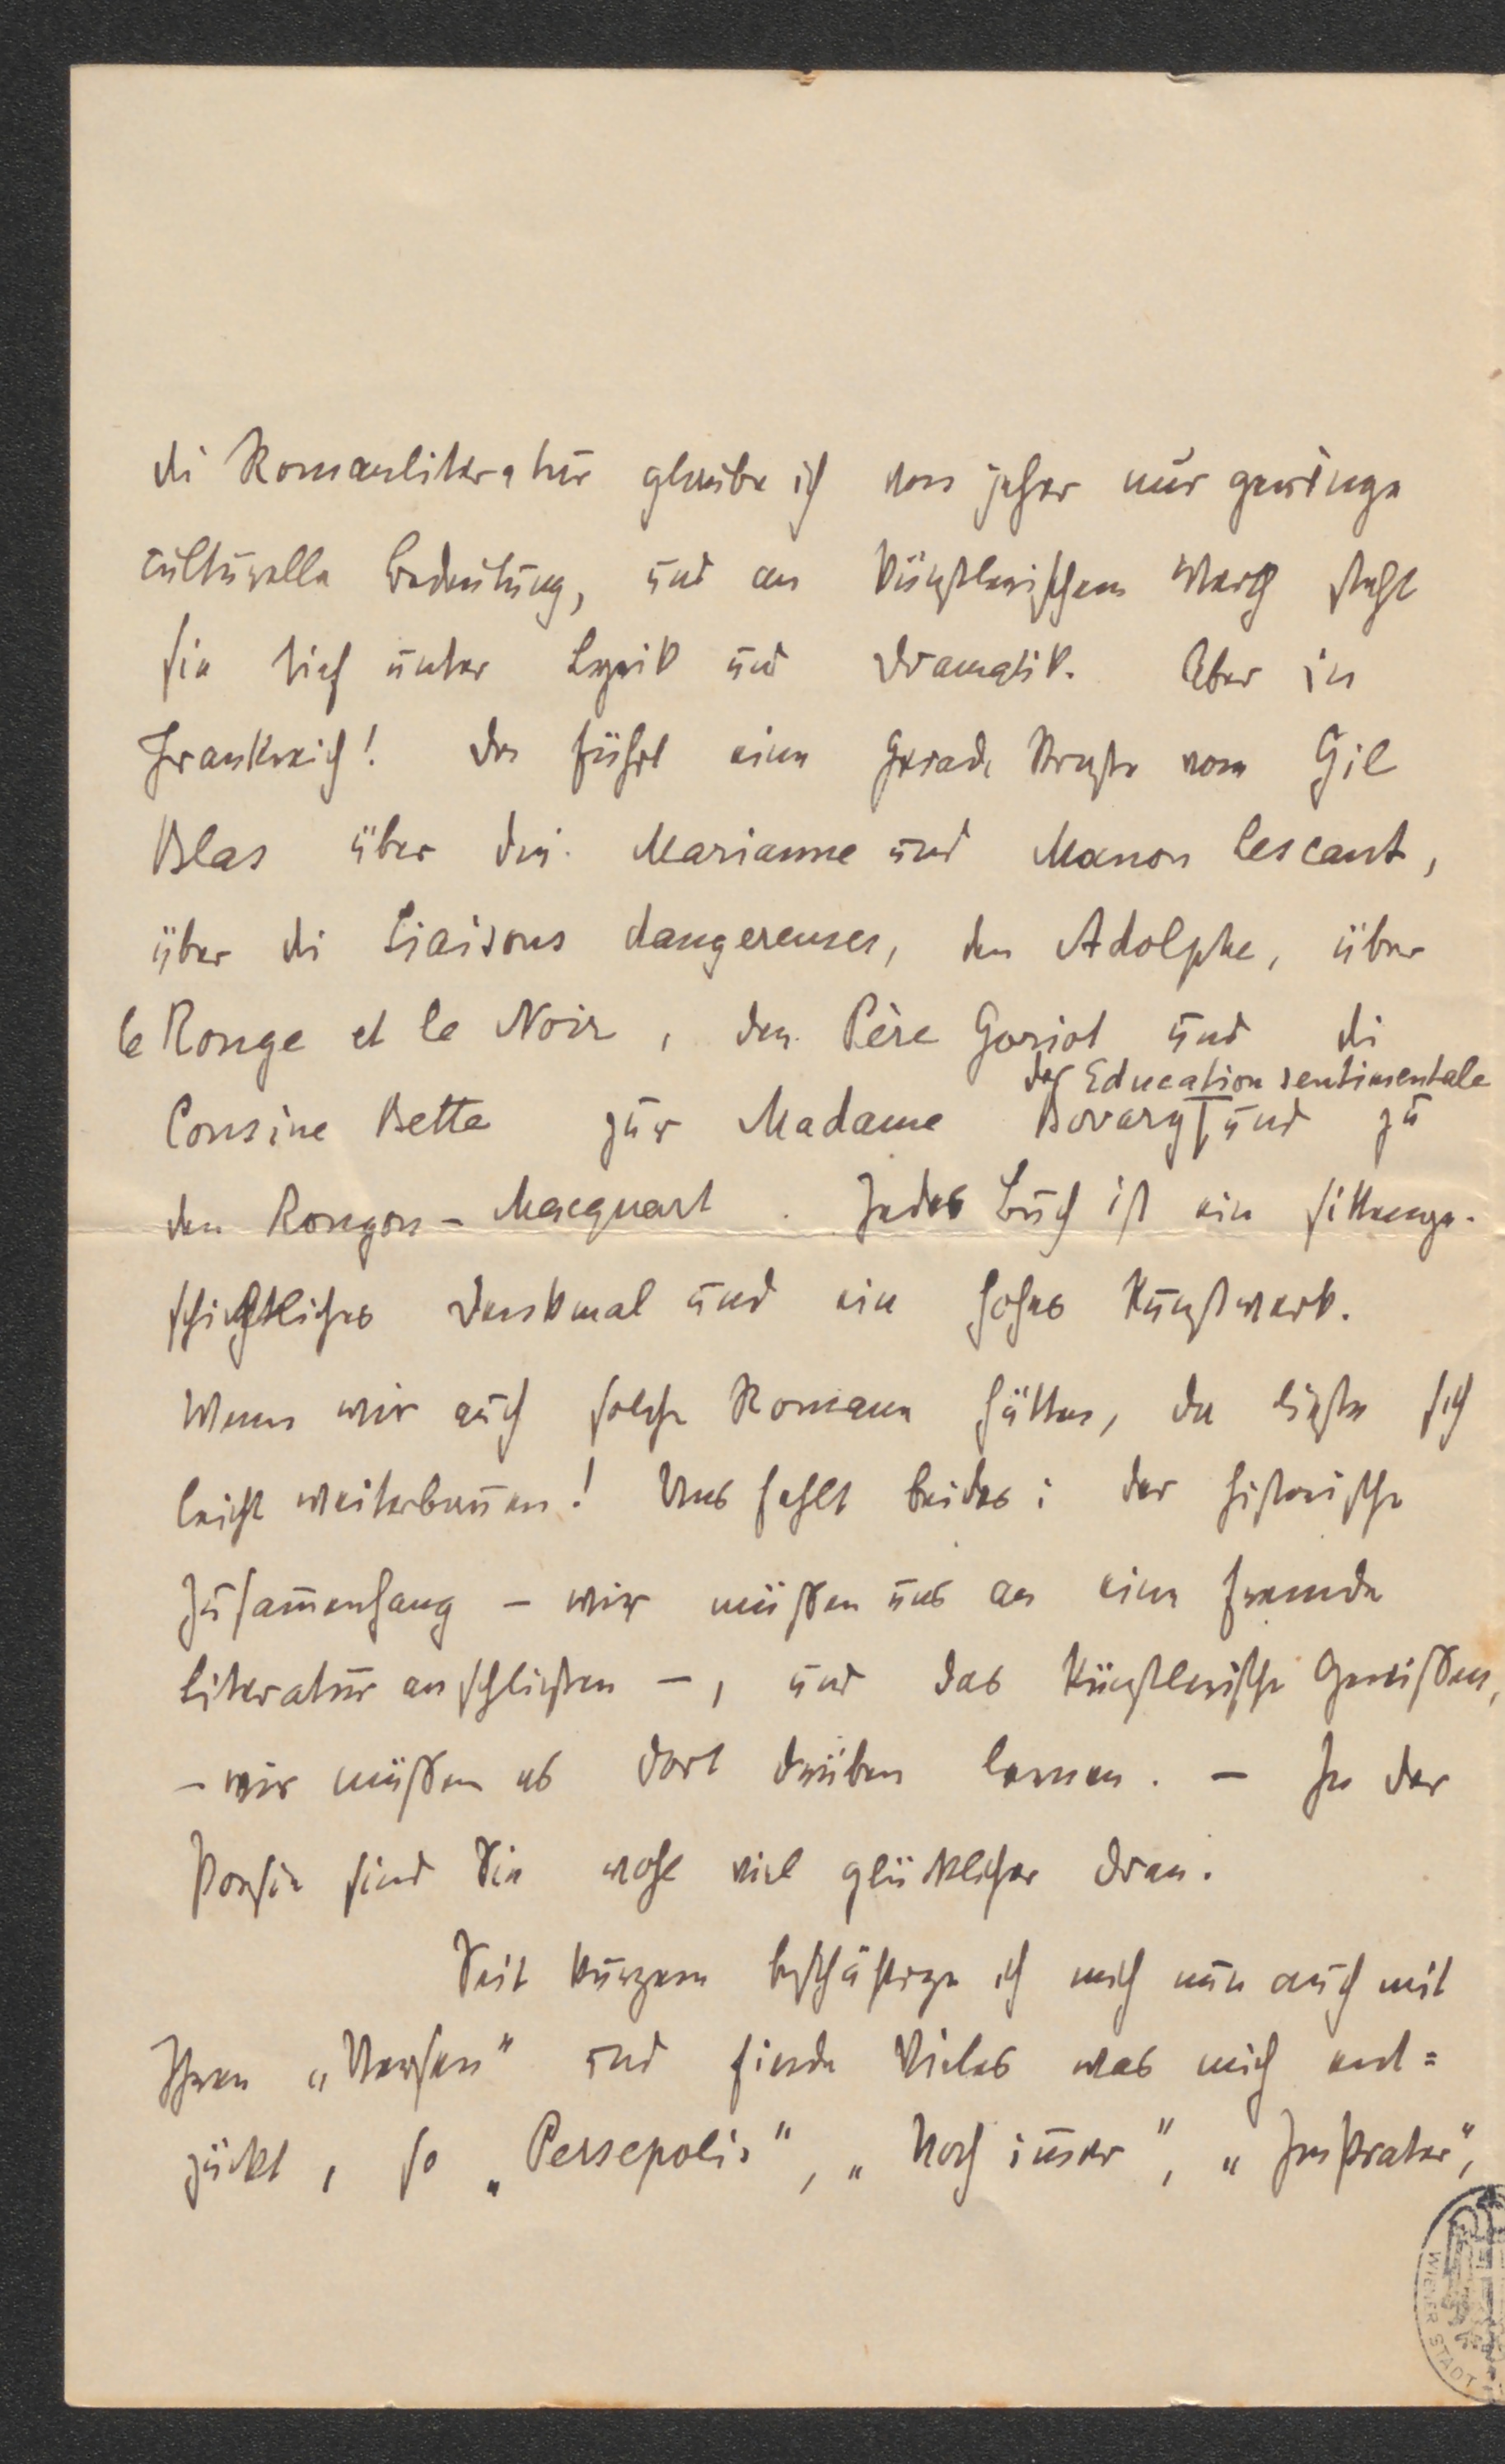 die Romanliteratur glaube ich von jeher nur geringe
culturelle Bedeutung, und an künstlerischem Werth steht
sie tief unter Lyrik und Dramatik. Aber in
Frankreich! Da führt eine gerade Straße vom Gil
Blas über die Marianne und Manon Lescaut,
über die Liaisons dangereuses, den Adolphe, über
le Rouge et le Noir, den Père Goriot und die
der Education sentimentale
Cousine Bette zur Madame Bovary und zu
den Rougon-Macquart. Jedes Buch ist ein sittenge-
schichtliches Denkmal und ein hohes Kunstwerk.
Wenn wir auch solche Romane hätten, da ließe sich
leicht weiterbauen! Uns fehlt beides: der historische
Zusam̅enhang – wir müßen uns an eine fremde
Literatur anschließen –, und das künstlerische Gewißen,
– wir müßen es dort drüben lernen. – In der
Poesie sind Sie wohl viel glücklicher dran.
Seit kurzem beschäftige ich mich nun auch mit
Ihren „Versen“ und finde Vieles was mich ent=
zückt, so „Persepolis“, „Noch im̅er“, „Im Prater“,
WIENER STADT